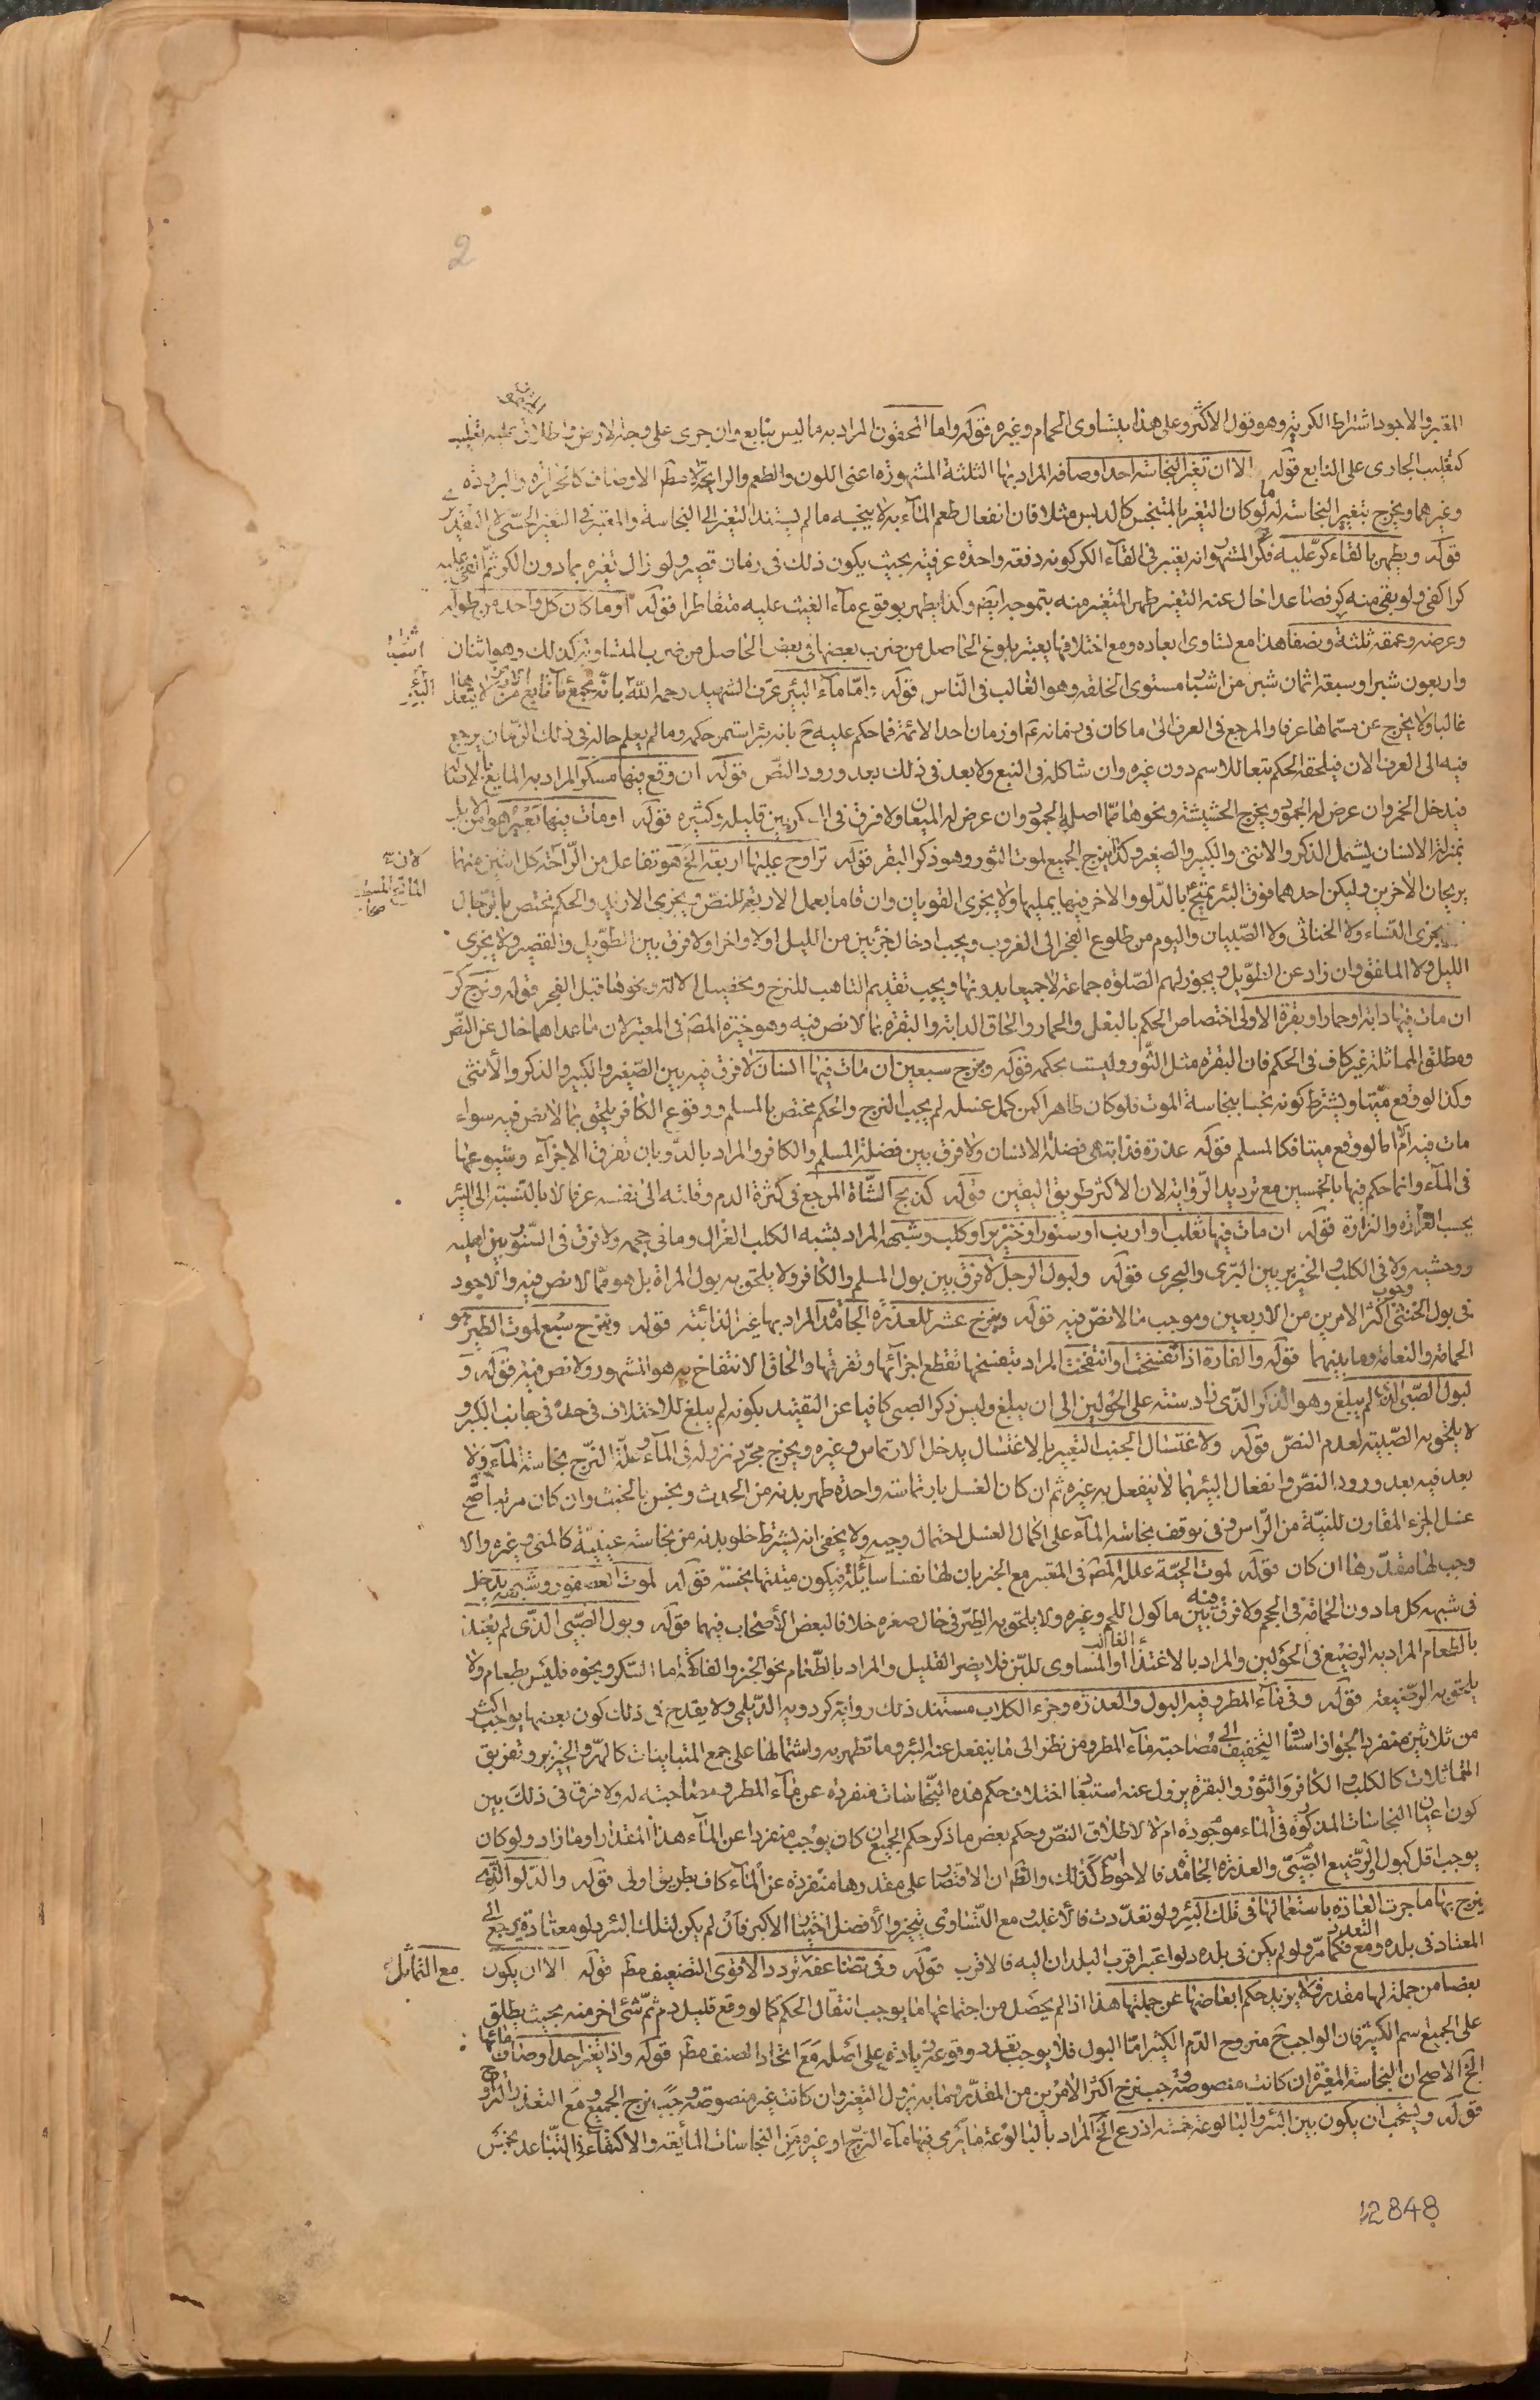 2
المعتبر والاجود اشتراط الكرية وهو قول الاكثر وعلى هذا يتساوى الحمام وغيره قوله واما المحقون المراد به ما ليس بنابع وان جرى على وجه الارض واطلاق عليه تغليب
كتغليب الجارى على النابع قوله الا ان تغير النجاسة احد اوصافه المراد بها الثلثة المشهورة اعنى اللون والطعم والرايحة لا مطلق الاوصاف كالحرارة والبرودة
وغيرهما ويخرج بتغيير النجاسة له ما لو كان التغير بالمتنجس كالدبس مثلا فان انفعال طعم المآء به لا ينجسه ما لم يستند التغير الى النجاسة والمعتبر فى التغير الحسّى لا التقديرى
قوله ويطهر بالقاء كرّ عليه فكر المشهور انه يعتبر فى القآء الكر كونه دفعة واحدة عرفية بحيث يكون ذلك فى زمان قصير ولو زال تغيره بما دون الكر ثم القى عليه
كرا كفى ولو بقى منه كر فصاعدا خال عنه التغير طهر المتغير منه بتموجه ايضا وكذا يطهر بوقوع مآء الغيث عليه متقاطرا قوله او ما كان كل واحد من طوله
وعرضه وعمقه ثلثة ونصفا هذا مع تساوى ابعاده ومع اختلافها يعتبر بلوغ الحاصل من ضرب بعضها فى بعض الحاصل من ضرب المتساوية كذلك وهو اثنان
واربعون شبرا وسبعة اثمان شبر من اشبار مستوى الخلقة وهو الغالب فى النّاس قوله واما مآء البئر عرّف الشهيد رحمه الله بانّه مجمع مآء نابع من الارض لا يتعداها
غالبا ولا يخرج عن مسمّاها عرفا والمرجع فى العرف الى ما كان فى زمانه ع او زمان احد الائمة فما حكم عليه ح بانه بئر استمر حكمه وما لم يعلم حاله فى ذلك الزمان يرجع
فيه الى العرف الان فيلحقه الحكم تبعا للاسم دون غيره وان شاكله فى النبع ولا بعد فى ذلك بعد ورود النصّ قوله ان وقع فيها مسكر المراد به المايع بالاصالة
فيدخل الخمر وان عرض له الجمود ويخرج الحشيشة ونحوها ممّا اصله الجمود وان عرض له الميعان ولا فرق فى المسكر بين قليله وكثيره قوله او مات فيها بعير هو من الابل
بمنزلة الانسان يشمل الذكر والانثى والكبير والصغير وكذا ينزح الجميع لموت الثور وهو ذكر البقر قوله تراوح عليها اربعة الخ هو تفاعل من الراحة كل اثنين منهما
يريحان الاخرين وليكن احدهما فوق البئر يمتح بالدّلو والاخر فيها يمليها ولا يجزى القويان وان قاما بعمل الاربعة للنص ويجزى الازيد والحكم مختص بالرّجال
يجزى النساء ولا الخناثى ولا الصّبيان واليوم من طلوع الفجر الى الغروب ويجب ادخال جزئين من الليل اولا واخرا ولا فرق بين الطّويل والقصير ولا يجزى
الليل ولا الملفق وان زاد عن الطّويل ويجوز لهم الصّلوة جماعة لا جميعا بدونها ويجب تقديم التاهب للنزح وتحصيل الالة ونحوها قبل الفجر قوله ونزح كرّ
ان مات فيها دابة او حمار او بقرة الاولى اختصاص الحكم بالبغل والحمار والحاق الدابة والبقرة بما لا نص فيه وهو خيرة المص فى المعتبر لان ما عداهما خال عن النصّ
ومطلق المماثلة غير كاف فى الحكم فان البقرة مثل الثّور وليست بحكمه قوله وينزح سبعين ان مات فيها انسان لا فرق فيه بين الصّغير والكبير والذكر والأنثى
وكذا لو وقع ميتا ويشترط كونه نجسا بنجاسة الموت فلو كان طاهرا كمن كمل غسله لم يجب النزح والحكم مختص بالمسلم ووقوع الكافر يلحق بما لا نص فيه سواء
مات فيه ام لا اما لو وقع ميتا فكالمسلم قوله عذرة فذابت هى فضلة الانسان ولا فرق بين فضلة المسلم والكافر والمراد بالذّوبان تفرق الاجزآء وشيوعها
فى المآء وانما حكم فيها بالخمسين مع ترديد الرّواية لان الاكثر طريق اليقين قوله كذبح الشّاة المرجع فى كثرة الدم وقلته الى نفسه عرفا لا بالنّسبة الى البئر
بحسب الغزارة والنزارة قوله ان مات فيها ثعلب او ارنب او سنور او خنزير او كلب وشبهه المراد بشبه الكلب الغزال وما فى حجمه ولا فرق فى السّنور بين اهليه
ووحشيه ولا فى الكلب والخنزير بين البرّى والبحرى قوله ولبول الرجل لا فرق بين بول المسلم والكافر ولا يلحق به بول المراة بل هو ممّا لا نص فيه والاجود وجوب
فى بول الخنثى اكثر الامرين من الاربعين وموجب ما لا نصّ فيه قوله وينزح عشر للعذرة الجامدة المراد بها غير الذائبة قوله وينزح سبع لموت الطير هو
الحمامة والنعامة وما بينهما قوله والفارة اذا تفسخت او انتفخت المراد بتفسخها تقطع اجزآئها وتفرقها والحاق الانتفاخ به هو المشهور ولا نص فيه قوله و
لبول الصّبى الذى لم يبلغ وهو الذكر الذى زاد سنه على الحولين الى ان يبلغ وليس ذكر الصبى كافيا عن التقييد بكونه لم يبلغ للاختلاف فى حدّه فى جانب الكبر و
لا يلحق به الصّبية لعدم النصّ قوله ولاغتسال الجنب التعبير بالاغتسال يدخل الارتماس وغيره ويخرج مجرّد نزوله فى المآء وعلّة النّزح نجاسة المآء ولا
بعد فيه بعد ورود النصّ وانفعال البئر بما لا ينفعل به غيره ثم ان كان الغسل بارتماسة واحدة طهر بدنه من الحدث ونجس بالخبث وان كان مرتبا صّح
غسل الجزء المقارن للنيّة من الرّاس وفى توقف نجاسة المآء على اكمال الغسل احتمال وجيه ولا يخفى انه يشترط خلو بدنه من نجاسة عينيّة كالمنى وغيره والا
وجب لها مقدّرها ان كان قوله لموت الحيّة علل المص فى المعتبر مع الخبر بان لها نفسا سآئلة فيكون ميتتها نجسة قوله لموت العصفور وشبهه يدخل
فى شبهه كل ما دون الحمامة فى الحجم ولا فرق فيه بين ماكول اللحم وغيره ولا يلحق به الطّير فى حال صغره خلافا لبعض الأصحاب فيهما قوله وبول الصّبى الّذى لم يغتذ
بالطّعام المراد به الرضيع فى الحولين والمراد بالاغتذاء الغالب او المساوى للبّن فلا يضر القليل والمراد بالطّعام نحو الخبز والفاكهة اما السّكر ونحوه فليس بطعام ولا
يلحق به الرّضيعة قوله وفى مآء المطر وفيه البول والعذرة وخرء الكلاب مستند ذلك رواية كردويه الدّيلمى ولا يقدح فى ذلك كون بعضها يوجب اكثر
من ثلاثين منفردا لجواز استناد التّخفيف الى مصاحبة مآء المطر ومن نظر الى ما ينفعل عنه البئر وما تطهر به واشتمالها على جمع المتباينات كالهرّ والخنزير وتفريق
المتماثلات كالكلب والكافر والثور والبقرة يزول عنه استبعاد اختلاف حكم هذه النّجاسات منفردة عن مآء المطر ومصاحبة له ولا فرق فى ذلك بين
كون اعيان النجاسات المذكورة فى المآء موجودة ام لا لاطلاق النصّ وحكم بعض ما ذكر حكم الجميع ان كان يوجب منفردا عن المآء هذا المقدار او ما زاد ولو كان
يوجب اقل كبول الرّضيع الصّبىّ والعذرة الجامدة فالاحوط انه كذلك والظ ان الاقتصار على مقدرها منفردة عن المآء كاف بطريق اولى قوله والدّلو الّتى
ينزح بها ما جرت العادة باستعمالها فى تلك البئر ولو تعدّدت فالاغلب ومع التّساوى يتخير والأفضل اختيار الاكبر فان لم يكن لتلك البئر دلو معتادة يرجع الى
المعتاد فى بلده ومع التعدد فكما مرّ ولو لم يكن فى بلده دلو اعتبر اقرب البلدان اليه فالاقرب قوله وفى تضاعفه تردد الاقوى التضعيف مط قوله الا ان يكون
بعضا من جملة لها مقدر فلا يزيد حكم ابعاضها عن جملتها هذا اذا لم يحصل من اجتماعها ما يوجب انتقال الحكم كما لو وقع قليل دم ثمّ شئ اخر منه بحيث يطلق
على الجميع اسم الكثير فان الواجب ح منزوح الدّم الكثير امّا البول فلا يوجب تعدد وقوعه زيادة على اصله مع اتحاد الصنف مط قوله واذا تغير احد اوصاف مائها
الخ الاصح ان النجاسة المغيرة ان كانت منصوصة وجب نزح اكثر الامرين من المقدّر وما به يزول التغير وان كانت غير منصوصة وجب نزح الجميع ومع التعذر التراوح
قوله ويستحب ان يكون بين البئر والبالوعة خمسة اذرع الخ المراد بالبالوعة ما يرمى فيها مآء النزح او غيره من النجاسات المآئعة والاكتفآء فى التّباعد بخمس
اشبار
البئر
لان
المائع المسكر
مع التماثل
12848